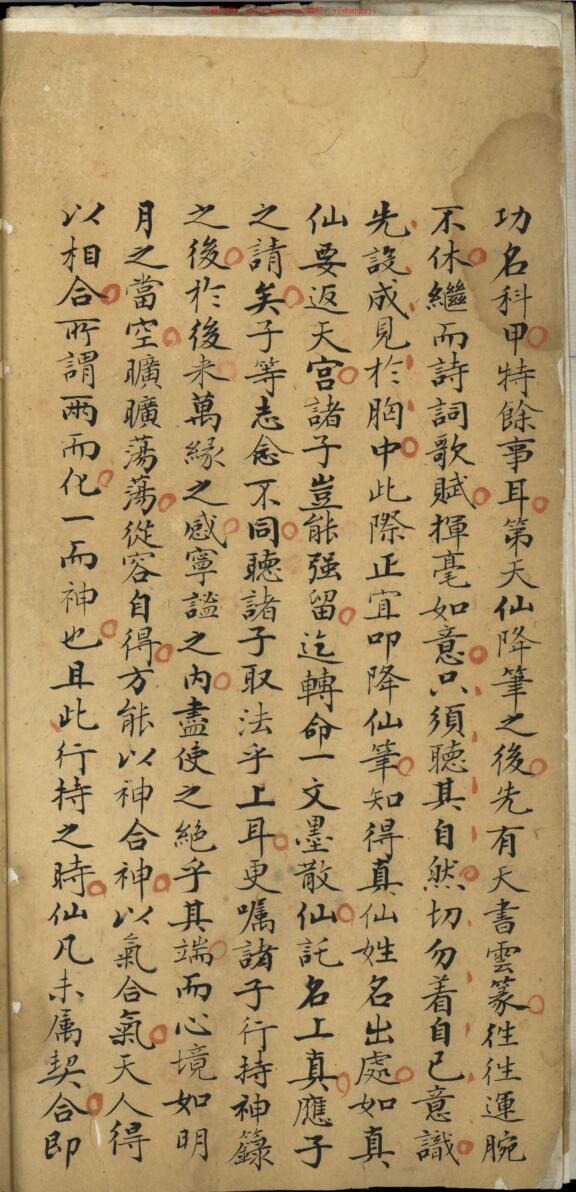 功名科甲特餘事耳第天仙降筆之後先有天書雲篆徃徃運腕
不休繼而詩詞歌賦揮毫如意只須聽其自然切勿着自已意識
先設成見於胸中此際正宜叩降仙筆知得真仙姓名出處如真
仙要返天宮諸子豈能强留迄轉命一文墨散仙託名上真應子
之請矣子等志念不同聽諸子取法乎上耳更嘱諸子行持神籙
之後於後来萬緣之感寧謐之内盡使之絶乎其端而心境如明
月之當空曠曠蕩蕩從容自得方能以神合神以氣合氣天人得
以相合所謂兩而化一而神也且此行持之時仙凡未属契合即